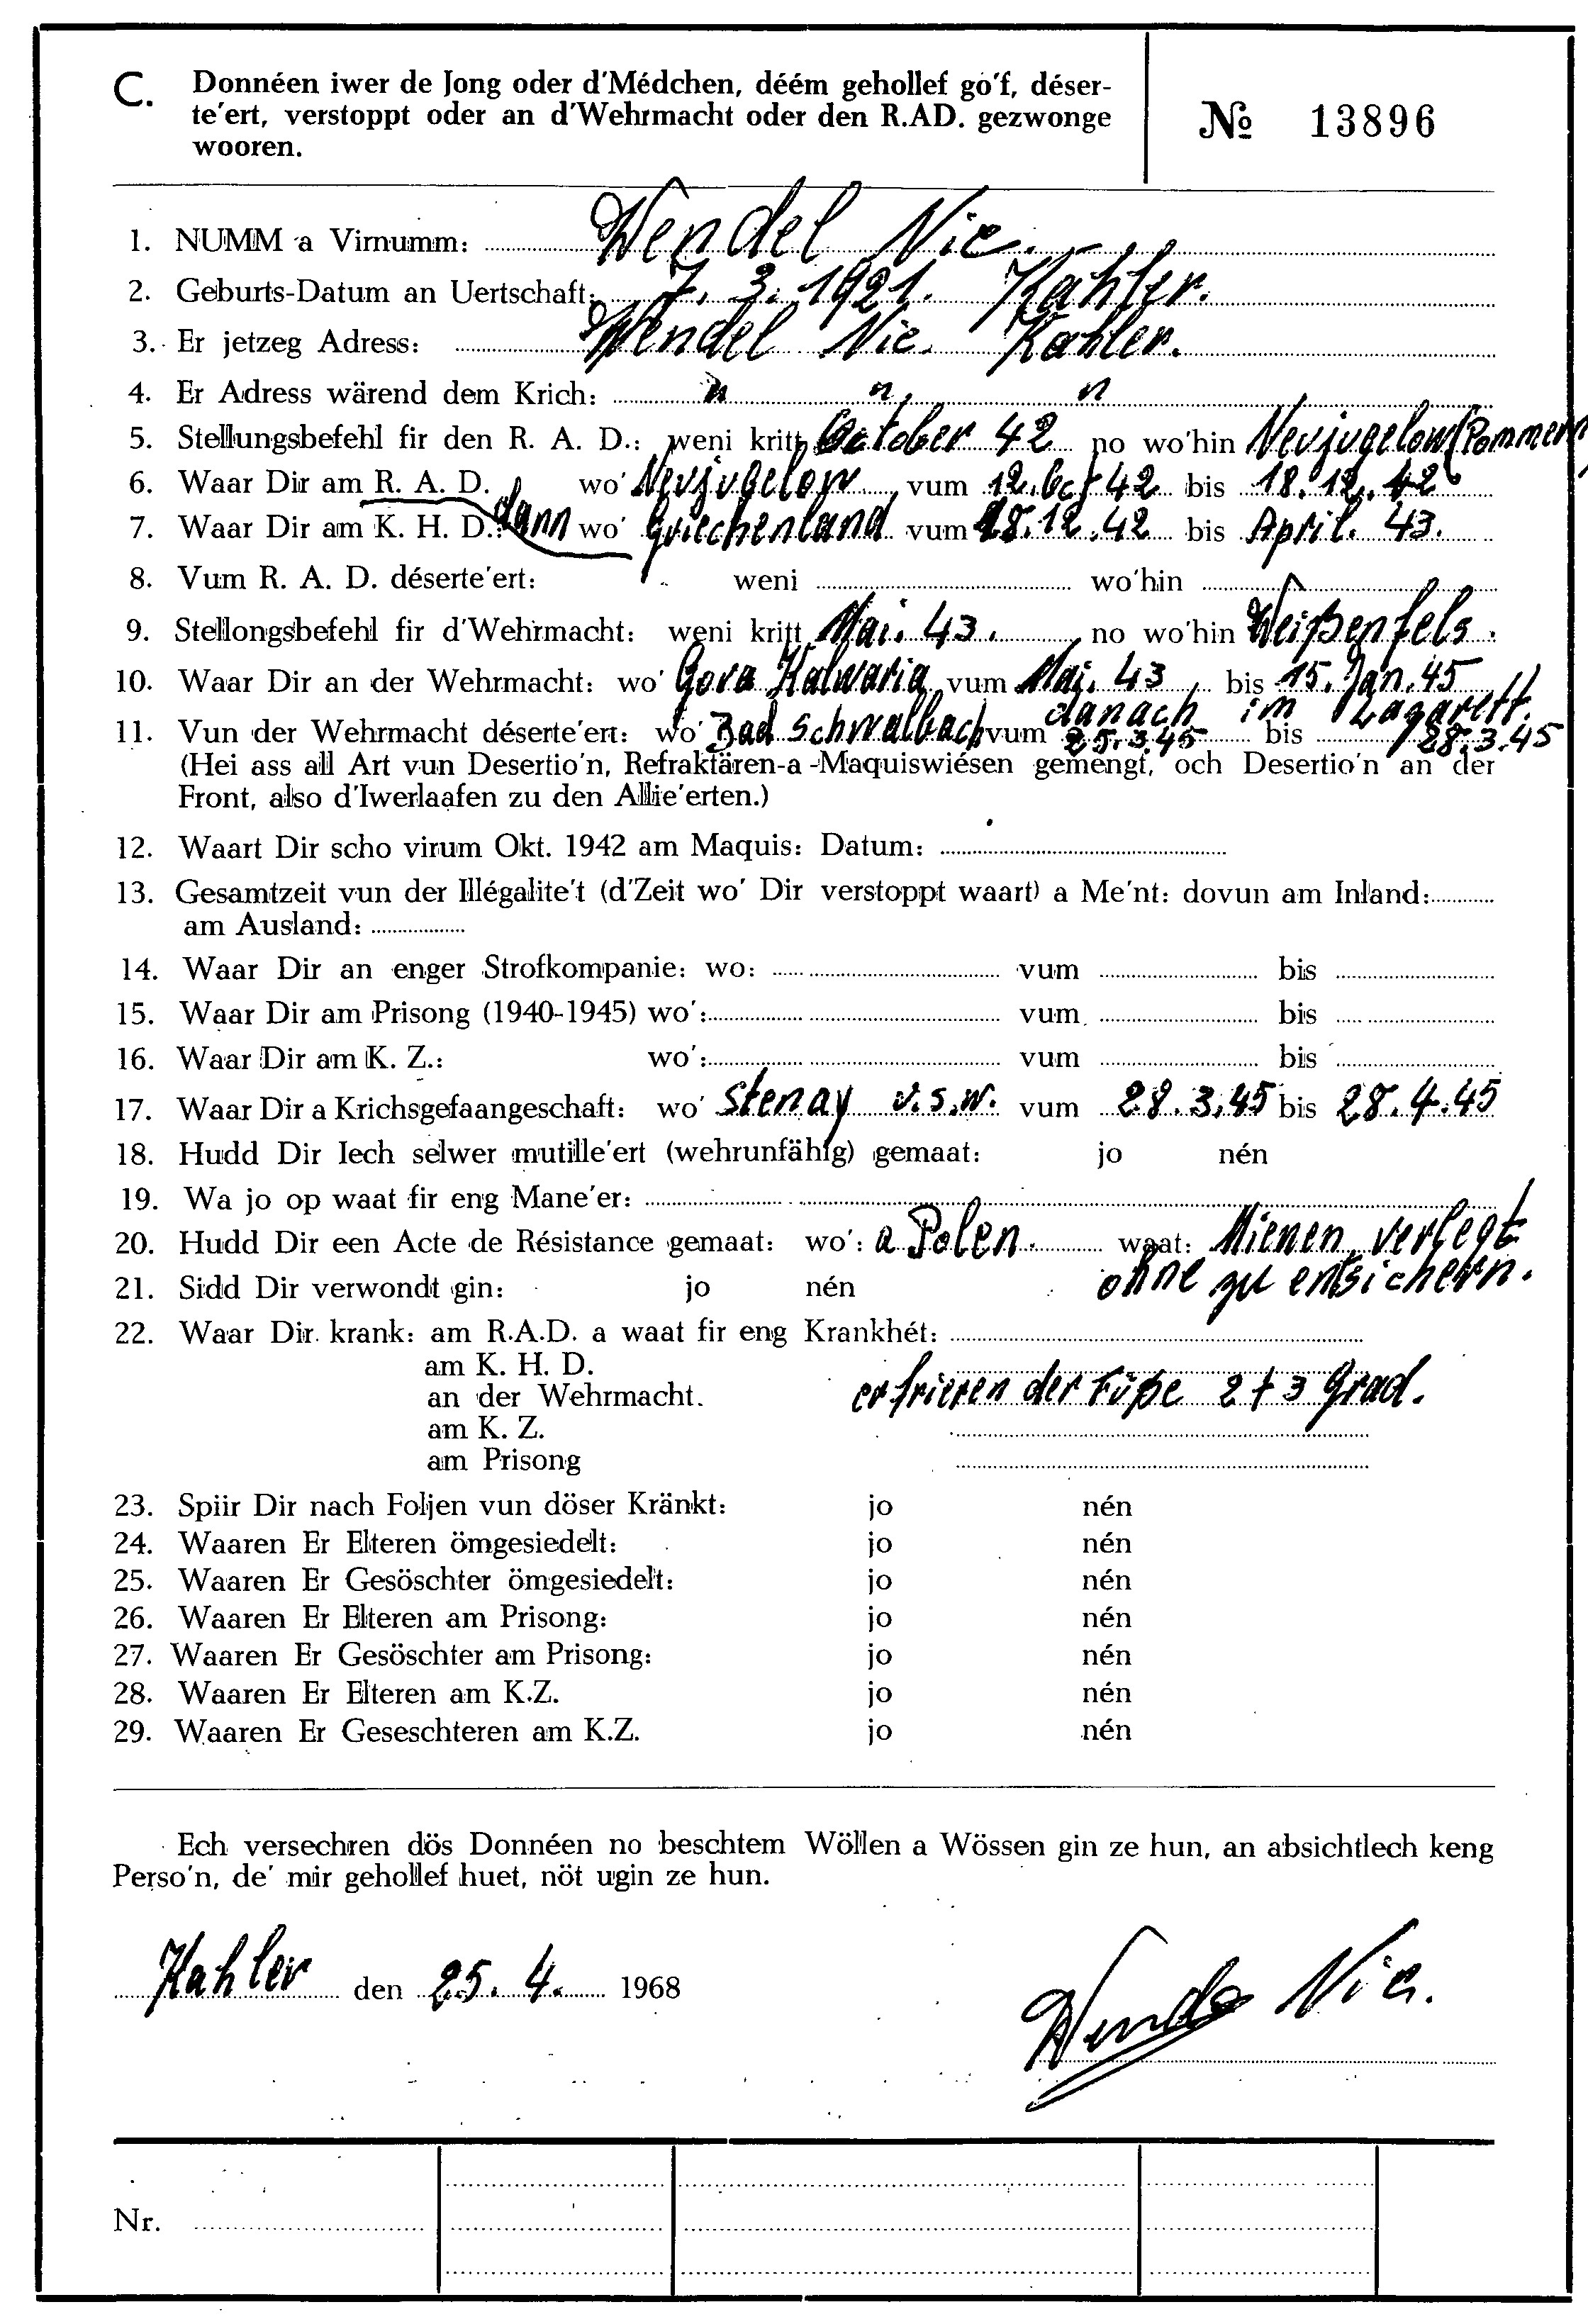 C. Donnéen iwer de Jong oder d'Médchen, déém gehollef go'f, déser-
te'ert, verstoppt oder an d'Wehrmacht oder den R.AD. gezwonge
wooren.
№ 13896
1. NUMM a Virnumm: Wendel Nic.
2. Geburts-Datum an Uertschaft: 7. 3. 1921. Kahler.
3. Er jetzeg Adress: Wendel Nic. Kahler.
4. Er Adress wärend dem Krich: " " "
5. Stellungsbefehl fir den R. A. D.: weni kritt October 42 no wo'hin Neujugelow (Pommern)
6. Waar Dir am R. A. D. wo' Neujugelow vum 12. Oct 42 bis 18. 12. 42
7. Waar Dir am K. H. D.: dann wo' Griechenland vum 18. 12. 42 bis April. 43.
8. Vum R. A. D. déserte'ert: weni wo'hin
9. Stellongsbefehl fir d'Wehrmacht: weni kritt Mai. 43. no wo'hin Weißenfels.
10. Waar Dir an der Wehrmacht: wo' Gora Kalwaria vum Mai. 43 bis 15. Jan. 45
danach im Lazarett.
11. Vun der Wehrmacht déserte'ert: wo' Bad Schwalbach vum 25. 3. 45 bis 28. 3. 45
(Hei ass all Art vun Desertio'n, Refraktären-a -Maquiswiésen gemengt, och Desertio'n an der
Front, also d'Iwerlaafen zu den Allie'erten.)
12. Waart Dir scho virum Okt. 1942 am Maquis: Datum:
13. Gesamtzeit vun der Illégalite't (d'Zeit wo' Dir verstoppt waart) a Me'nt: dovun am Inland:
am Ausland:
14. Waar Dir an enger Strofkompanie: wo: vum bis
15. Waar Dir am Prisong (1940-1945) wo': vum bis
16. Waar Dir am K. Z.: wo': vum bis
17. Waar Dir a Krichsgefaangeschaft: wo' Stenay u.s.w. vum 28. 3. 45 bis 28. 4. 45
18. Hudd Dir Iech selwer mutille'ert (wehrunfähig) gemaat: jo nén
19. Wa jo op waat fir eng Mane'er:
20. Hudd Dir een Acte de Résistance gemaat: wo': a Polen. waat: Mienen verlegt
ohne zu entsichern.
21. Sidd Dir verwondt gin: jo nén
22. Waar Dir krank: am R.A.D. a waat fir eng Krankhét:
am K. H. D.
an der Wehrmacht. erfrieren der Füße 2 + 3 Grad.
am K. Z.
am Prisong
23. Spiir Dir nach Foljen vun döser Kränkt: jo nén
24. Waaren Er Elteren ömgesiedelt: jo nén
25. Waaren Er Gesöschter ömgesiedelt: jo nén
26. Waaren Er Elteren am Prisong: jo nén
27. Waaren Er Gesöschter am Prisong: jo nén
28. Waaren Er Elteren am K.Z. jo nén
29. Waaren Er Geseschteren am K.Z. jo nén
Ech versechren dös Donnéen no beschtem Wöllen a Wössen gin ze hun, an absichtlech keng
Perso'n, de' mir gehollef huet, nöt ugin ze hun.
Kahler den 25. 4. 1968
Wendel Nic.
Nr.